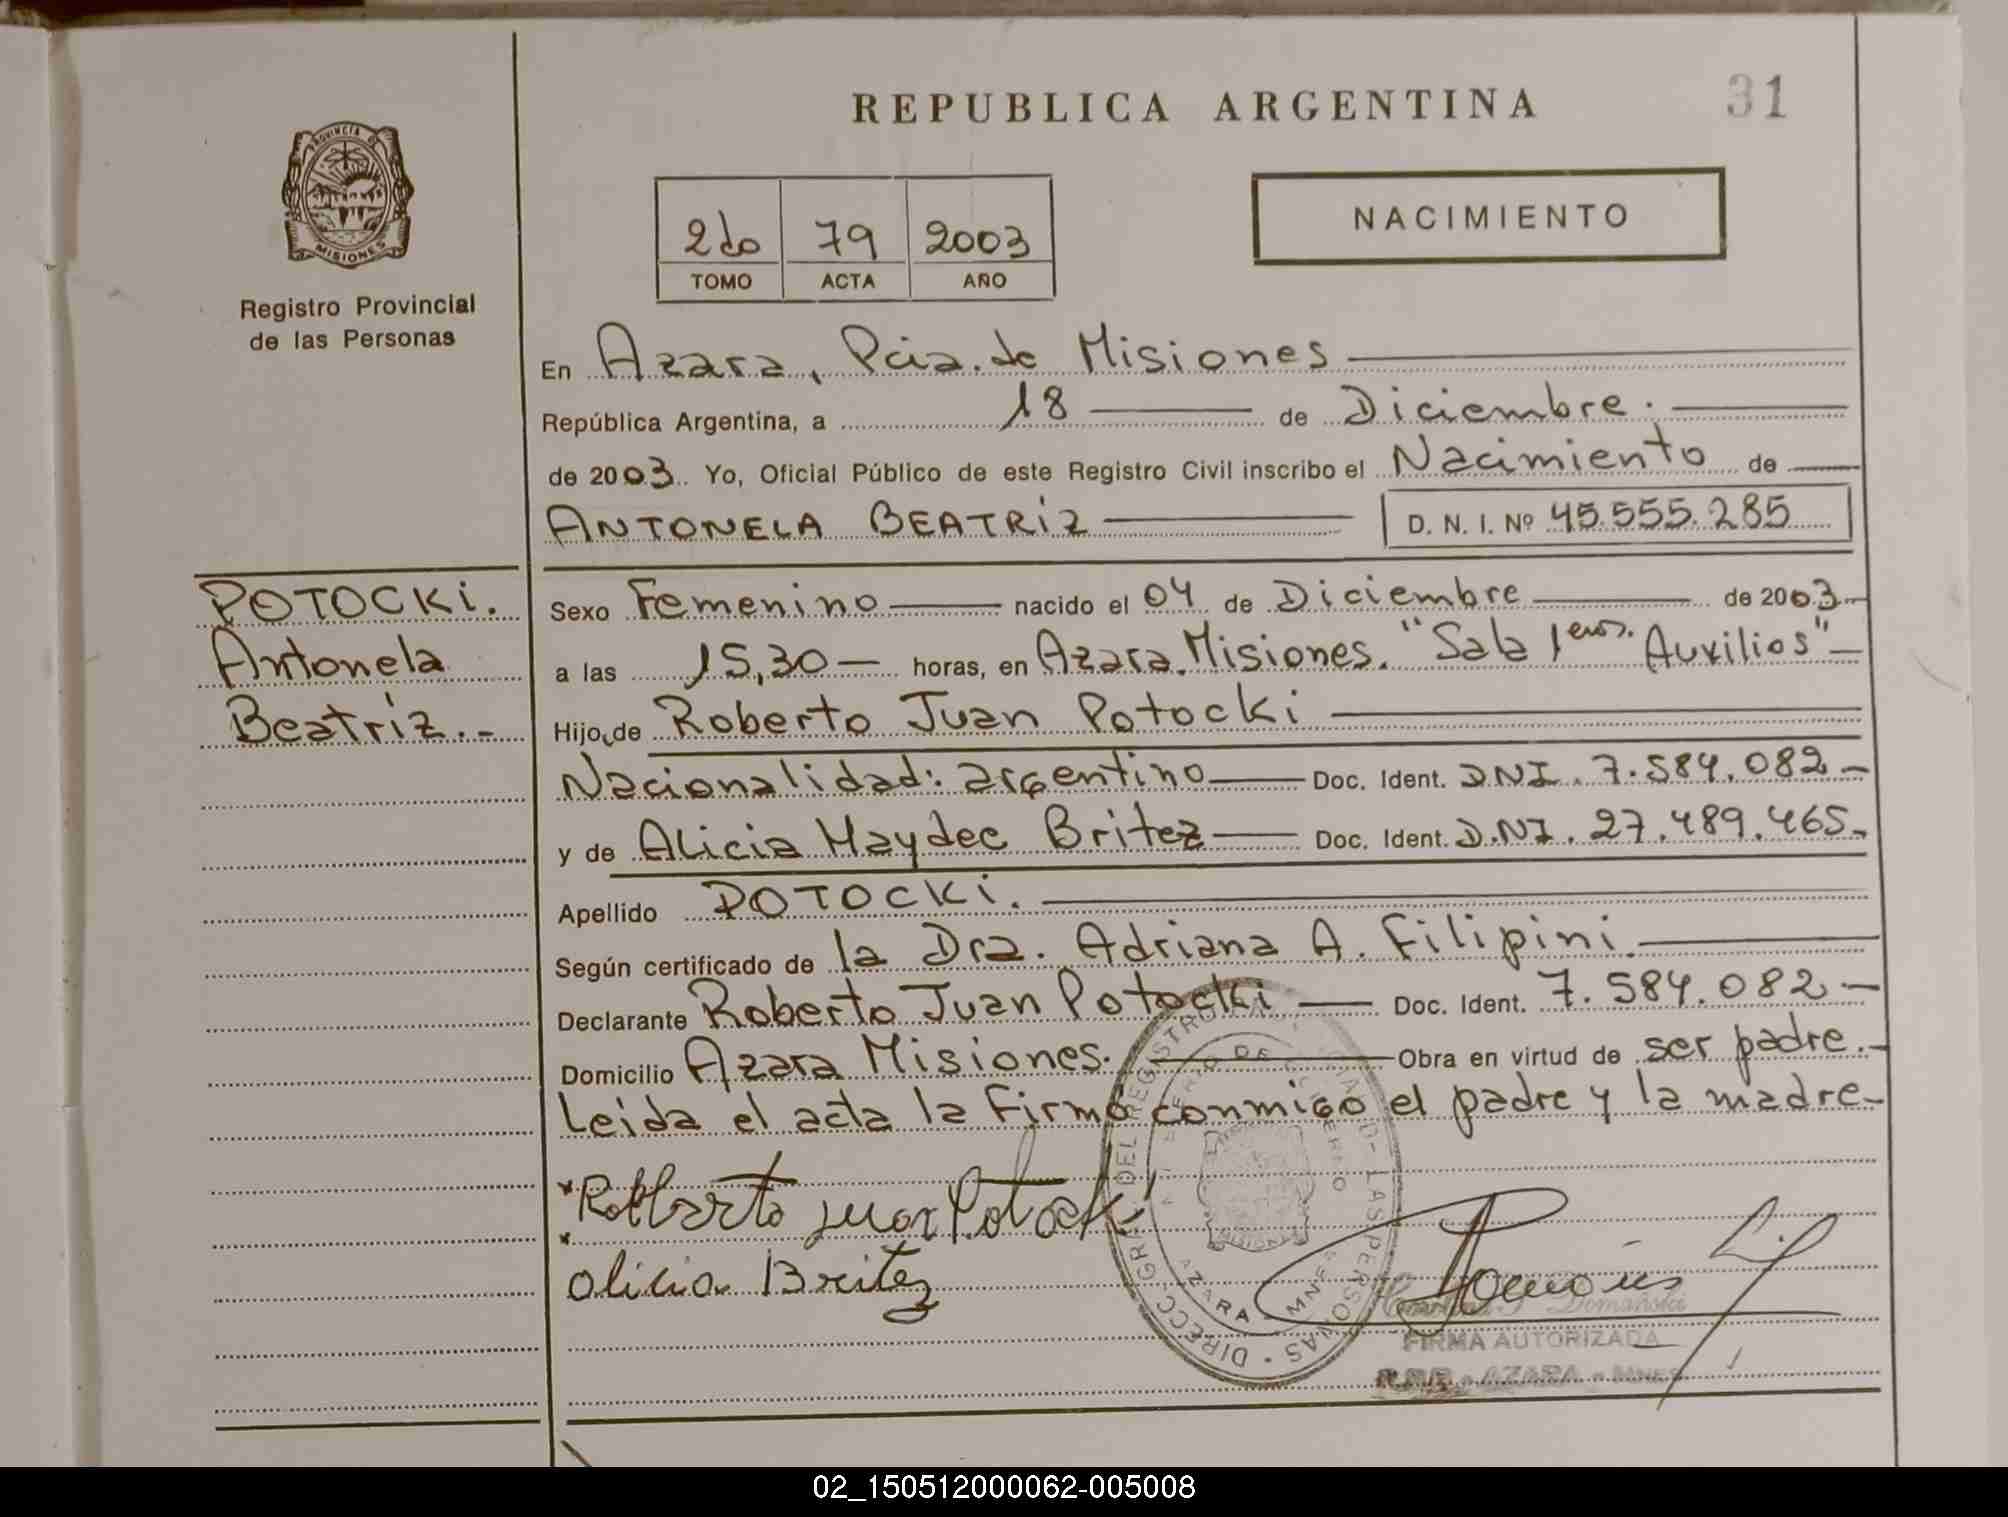 REPUBLICA ARGENTINA
31
PROVINCIA DE
MISIONES
Registro Provincial
de las Personas
2do 79 2003
TOMO ACTA AÑO
NACIMIENTO
En Azara, Pcia. de Misiones
República Argentina, a 18 de Diciembre.
de 2003. Yo, Oficial Público de este Registro Civil inscribo el Nacimiento de
ANTONELA BEATRIZ D. N. I. Nº 45.555.285
POTOCKI.
Antonela
Beatriz.-
Sexo Femenino nacido el 04 de Diciembre de 2003-
a las 15,30 horas, en Azara. Misiones. "Sala 1eros. Auxilios"
Hijo de Roberto Juan Potocki
Nacionalidad: argentino Doc. Ident. DNI. 7.584.082-
y de Alicia Haydee Britez Doc. Ident. D.NI. 27.489.465.
Apellido POTOCKI.
Según certificado de la Dra. Adriana A. Filipini.
Declarante Roberto Juan Potocki Doc. Ident. 7.584.082-
Domicilio Azara Misiones. Obra en virtud de ser padre.-
Leida el acta la firmó conmigo el padre y la madre-
Alicia Britez
DIRECC. GRAL. DEL REGISTRO LAS PERSONAS
AZARA - MNES
MISIONES
Domański
FIRMA AUTORIZADA
AZARA - MNES
02_150512000062-005008